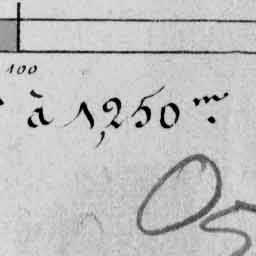 100
à 1,250 m.
05